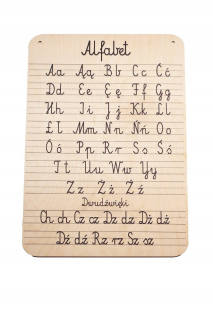 Alfabet
Aa Ąą Bb Cc Ćć
Dd Ee Ęę Ff Gg
Hh Ii Jj Kk Ll
Łł Mm Nn Ńń Oo
Óó Pp Rr Ss Śś
Tt Uu Ww Yy
Zz Źź Żż
Dwudźwięki
Ch ch Cz cz Dz dz Dż dż
Dź dź Rz rz Sz sz